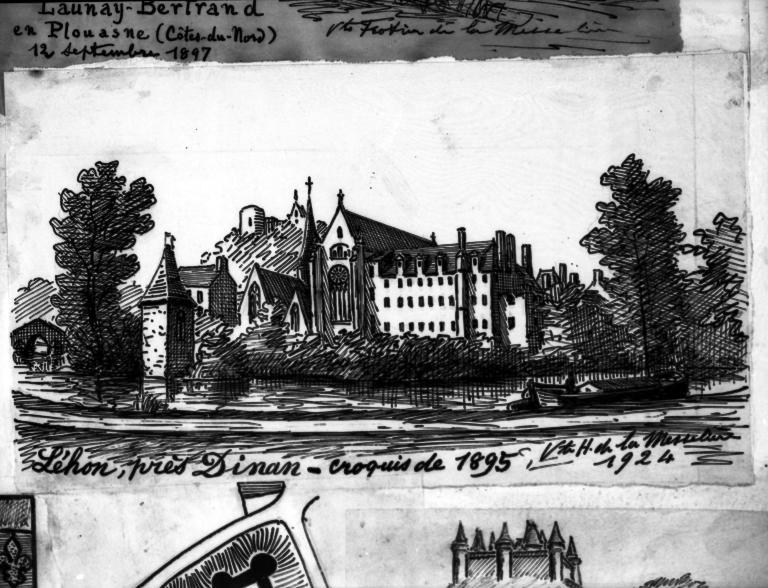 Launay-Bertrand
en Plouasne (Côtes-du-Nord)
12 Septembre 1897
Vte Frotier de la Messelière
Léhon, près Dinan - croquis de 1895, Vte H. de la Messelière
1924